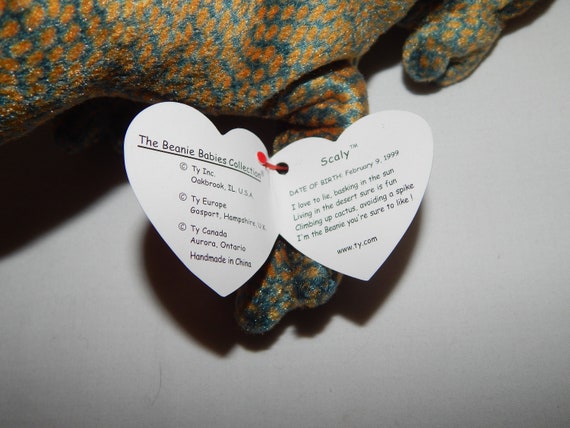 The Beanie Babies Collection®
© Ty Inc.
Oakbrook, IL. U.S.A.
© Ty Europe
Gosport, Hampshire, U.K.
© Ty Canada
Aurora, Ontario
Handmade in China
Scaly™
DATE OF BIRTH: February 9, 1999
I love to lie, basking in the sun
Living in the desert sure is fun
Climbing up cactus, avoiding a spike
I'm the Beanie you're sure to like !
www.ty.com